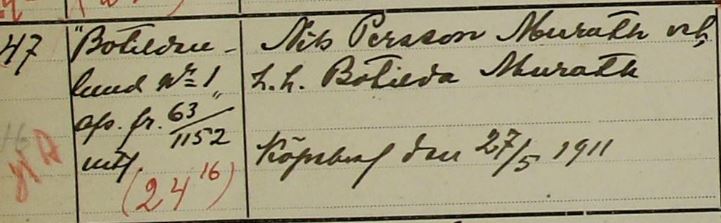 47
"Botildenlund No 1"
af. fr. 63/1152
mtl
(24 16)
Nils Persson Murath och
h. h. Botilda Murath
Köpebref den 27/5 1911